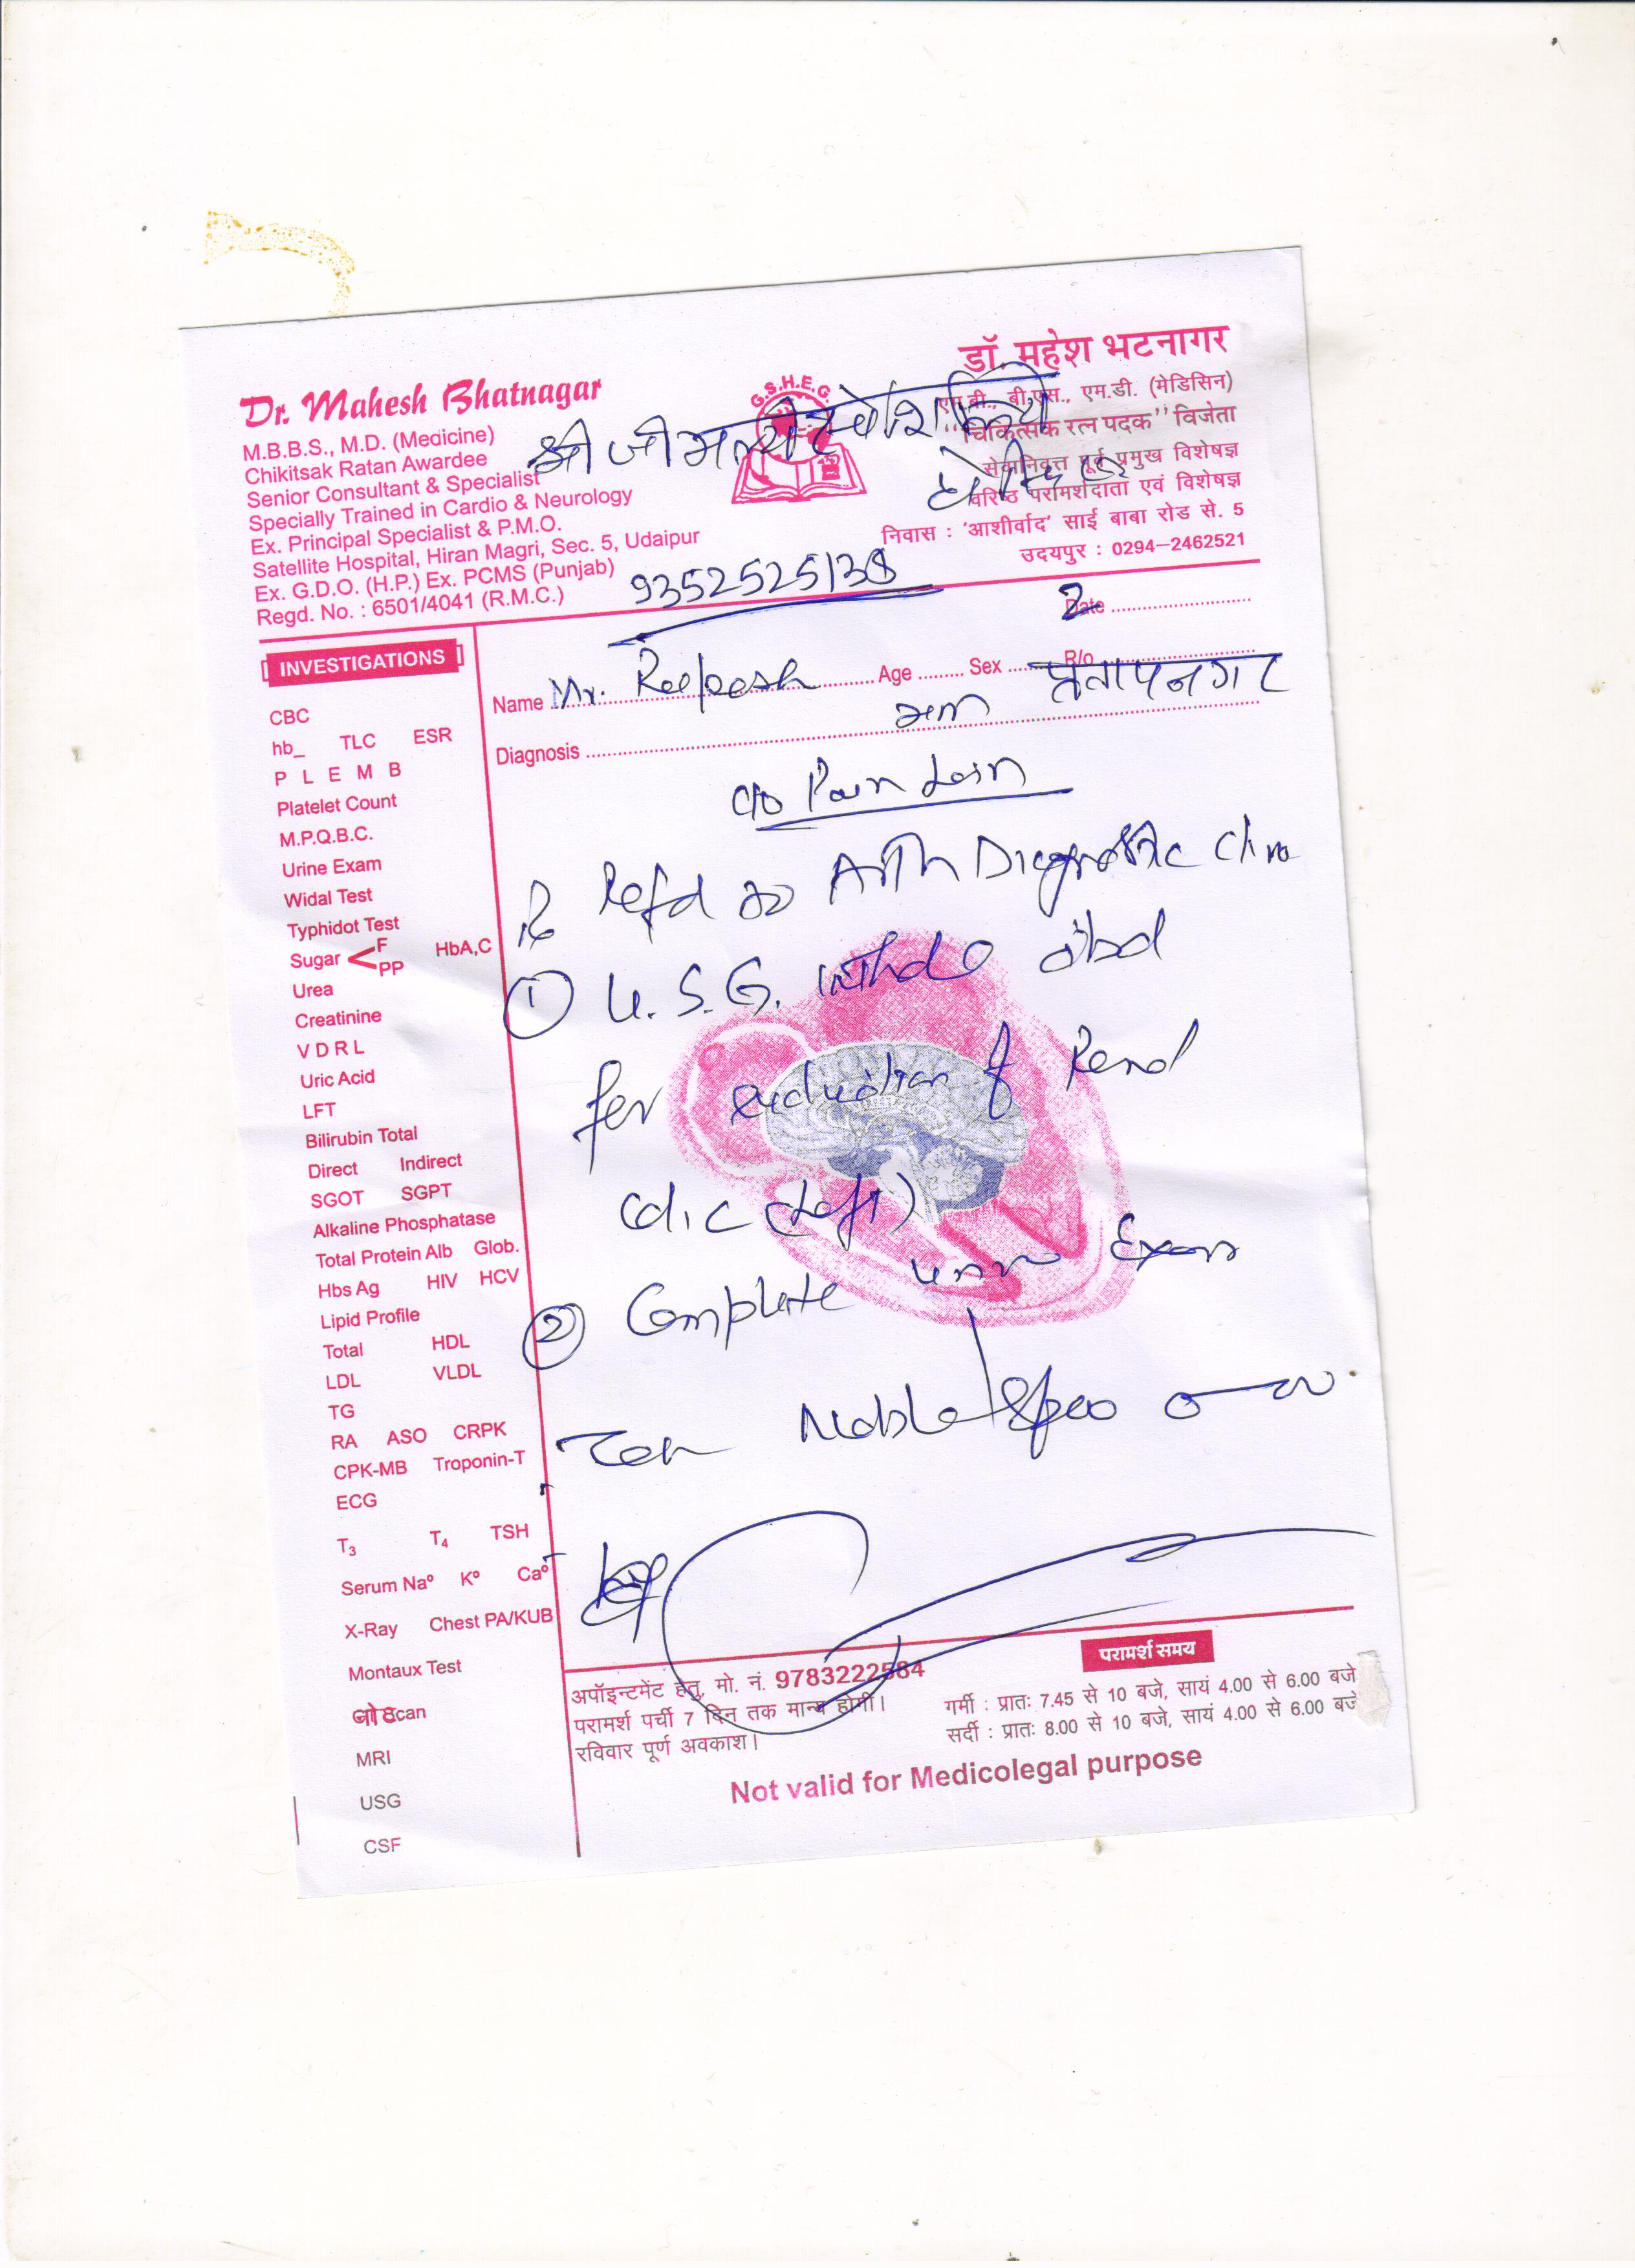 Dr. Mahesh Bhatnagar
M.B.B.S., M.D. (Medicine)
Chikitsak Ratan Awardee
Senior Consultant & Specialist
Specially Trained in Cardio & Neurology
Ex. Principal Specialist & P.M.O.
Satellite Hospital, Hiran Magri, Sec. 5, Udaipur
Ex. G.D.O. (H.P.) Ex. PCMS (Punjab)
Regd. No. : 6501/4041 (R.M.C.)
G.S.H.E.G.
डॉ. महेश भटनागर
एम.बी., बी.एस., एम.डी. (मेडिसिन)
"चिकित्सक रत्न पदक" विजेता
सेवानिवृत्त पूर्व प्रमुख विशेषज्ञ
वरिष्ठ परामर्शदाता एवं विशेषज्ञ
निवास : 'आशीर्वाद' साई बाबा रोड से. 5
उदयपुर : 0294-2462521
श्री जी
9352525138
Date
Name Mr. Age Sex R/o
प्रतापनगर
Diagnosis
c/o Pain Loin
Refd to Arth Diagnostic
① U.S.G. whole abd
for exclusion of Renal
colic (Left)
② Complete urine Exam
INVESTIGATIONS
CBC
hb_ TLC ESR
P L E M B
Platelet Count
M.P.Q.B.C.
Urine Exam
Widal Test
Typhidot Test
Sugar < F PP HbA,C
Urea
Creatinine
V D R L
Uric Acid
LFT
Bilirubin Total
Direct Indirect
SGOT SGPT
Alkaline Phosphatase
Total Protein Alb Glob.
Hbs Ag HIV HCV
Lipid Profile
Total HDL
LDL VLDL
TG
RA ASO CRPK
CPK-MB Troponin-T
ECG
T3 T4 TSH
Serum Naº Kº Caº
X-Ray Chest PA/KUB
Montaux Test
Scan
MRI
USG
CSF
अपॉइन्टमेंट हेतु, मो. नं. 9783222584
परामर्श पर्ची 7 दिन तक मान्य होगी।
रविवार पूर्ण अवकाश।
परामर्श समय
गर्मी : प्रातः 7.45 से 10 बजे, सायं 4.00 से 6.00 बजे
सर्दी : प्रातः 8.00 से 10 बजे, सायं 4.00 से 6.00 बजे
Not valid for Medicolegal purpose